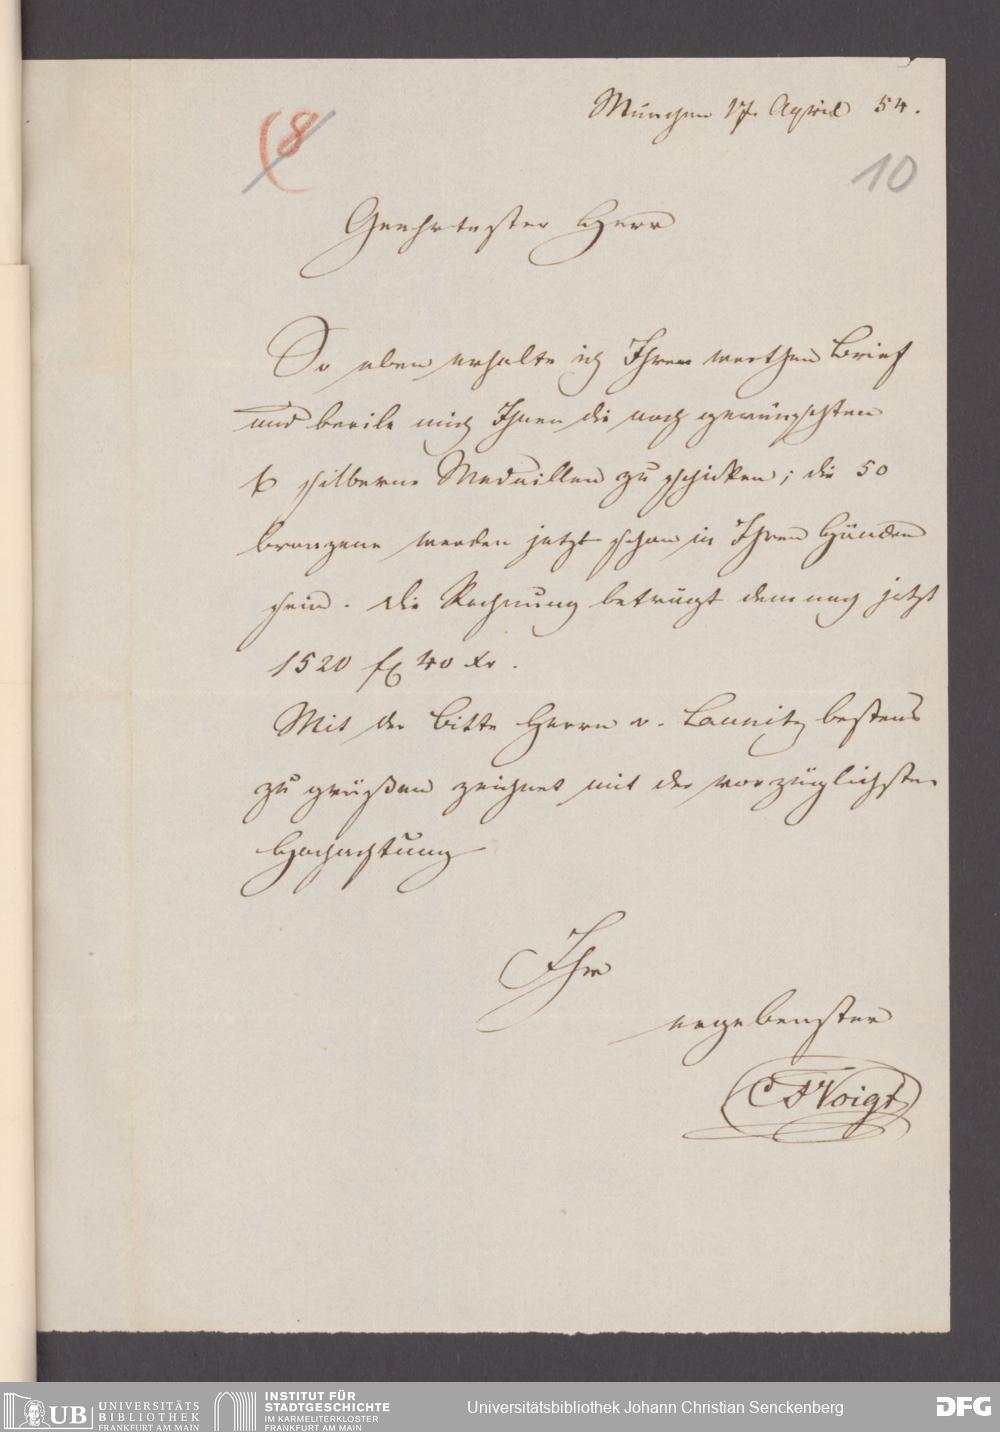 München 17. April 54.
(8
10
Geehrtester Herr
So eben erhalte ich Ihren werthen Brief
und beeile mich Ihnen die noch gewünschten
6 silberne Medaillen zu schicken; die 50
bronzene werden jetzt schon in Ihren Händen
sein. Die Rechnung beträgt demnach jetzt
1520 f 40 Xr.
Mit der Bitte Herrn v. Launitz bestens
zu grüßen zeichnet mit der vorzüglichsten
Hochachtung
Ihr
ergebenster
C F Voigt
UB UNIVERSITÄTS
BIBLIOTHEK
FRANKFURT AM MAIN
INSTITUT FÜR
STADTGESCHICHTE
IM KARMELITERKLOSTER
FRANKFURT AM MAIN
Universitätsbibliothek Johann Christian Senckenberg
DFG